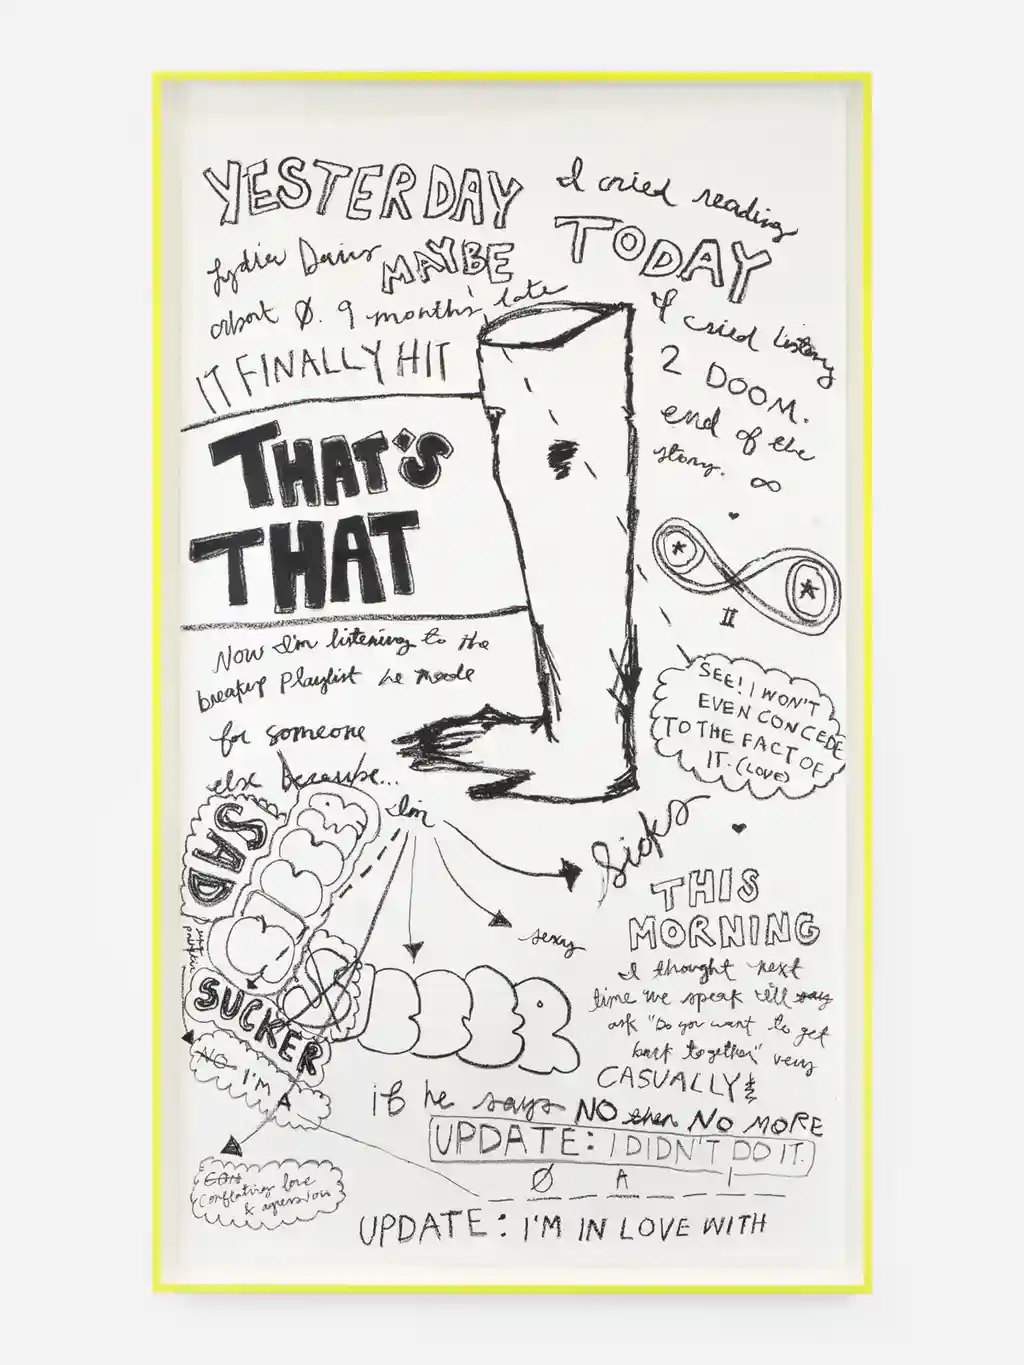 YESTERDAY
I cried reading
Lydia Davis MAYBE
about Ø. 9 months late
IT FINALLY HIT
THAT'S
THAT
TODAY
I cried listening
2 DOOM.
end of the
story. ∞
II
SEE! I WON'T
EVEN CONCEDE
TO THE FACT OF
IT. (LOVE)
Now I'm listening to the
breakup playlist he made
for someone
else because...
I'm
Sick
sexy
SAD
SUCKER
NO I'M
A
conflating love
&
THIS
MORNING
I thought next
time we speak I'll say
ask "Do you want to get
back together" very
CASUALLY &
if he says NO then NO MORE
UPDATE: I DIDN'T DO IT.
Ø A I
UPDATE: I'M IN LOVE WITH